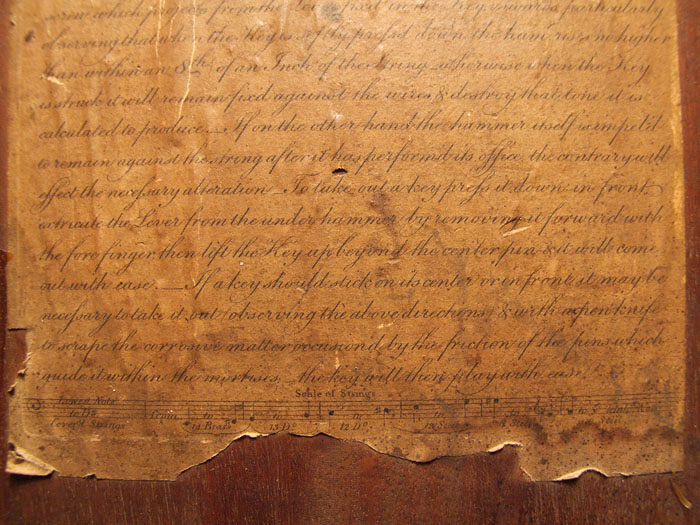 screw which projects from the lever fixed in the Key inwards particularly
observing that when the Key is softly press'd down the ham'r rises no higher
than within an 8th of an Inch of the string otherwise when the Key
is struck it will remain fixed against the wires & destroy that tone it is
calculated to produce. _ If on the other hand the hammer itself is impell'd
to remain against the string after it has perform'd its office, the contrary will
effect the necessary alteration _ To take out a key press it down in front
extricate the Lever from the under hammer by removing it forward with
the fore finger then lift the Key up beyond the center pin & it will come
out with ease. __ If a key should stick on its center or in front it may be
necessary to take it out (observing the above directions) & with a pen knife
to scrape the corrosive matter occasion'd by the friction of the pens which
guide it within the mortises, _ the key will then play with ease.
Scale of Strings
Lowest Note
to Do
Cover'd Strings
From
to
14 Brass
to
13 Do
to
12 Do
to
to
to